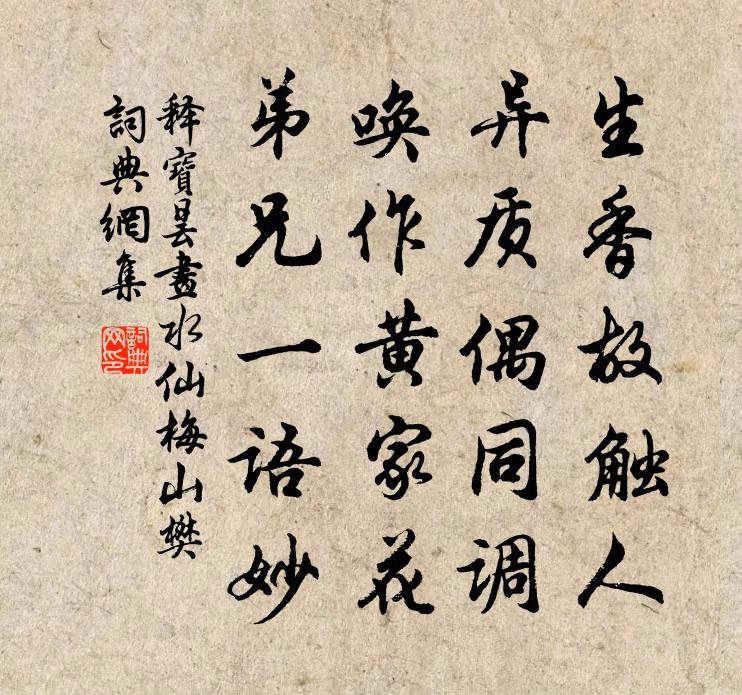 生香故触人
异质偶同调
唤作黄家花
弟兄一语妙
释寶曇畫水仙梅山樊
詞典網集
詞典网印